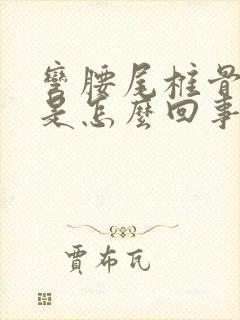 彎腰尾柱骨
是怎麼回事
賈布瓦